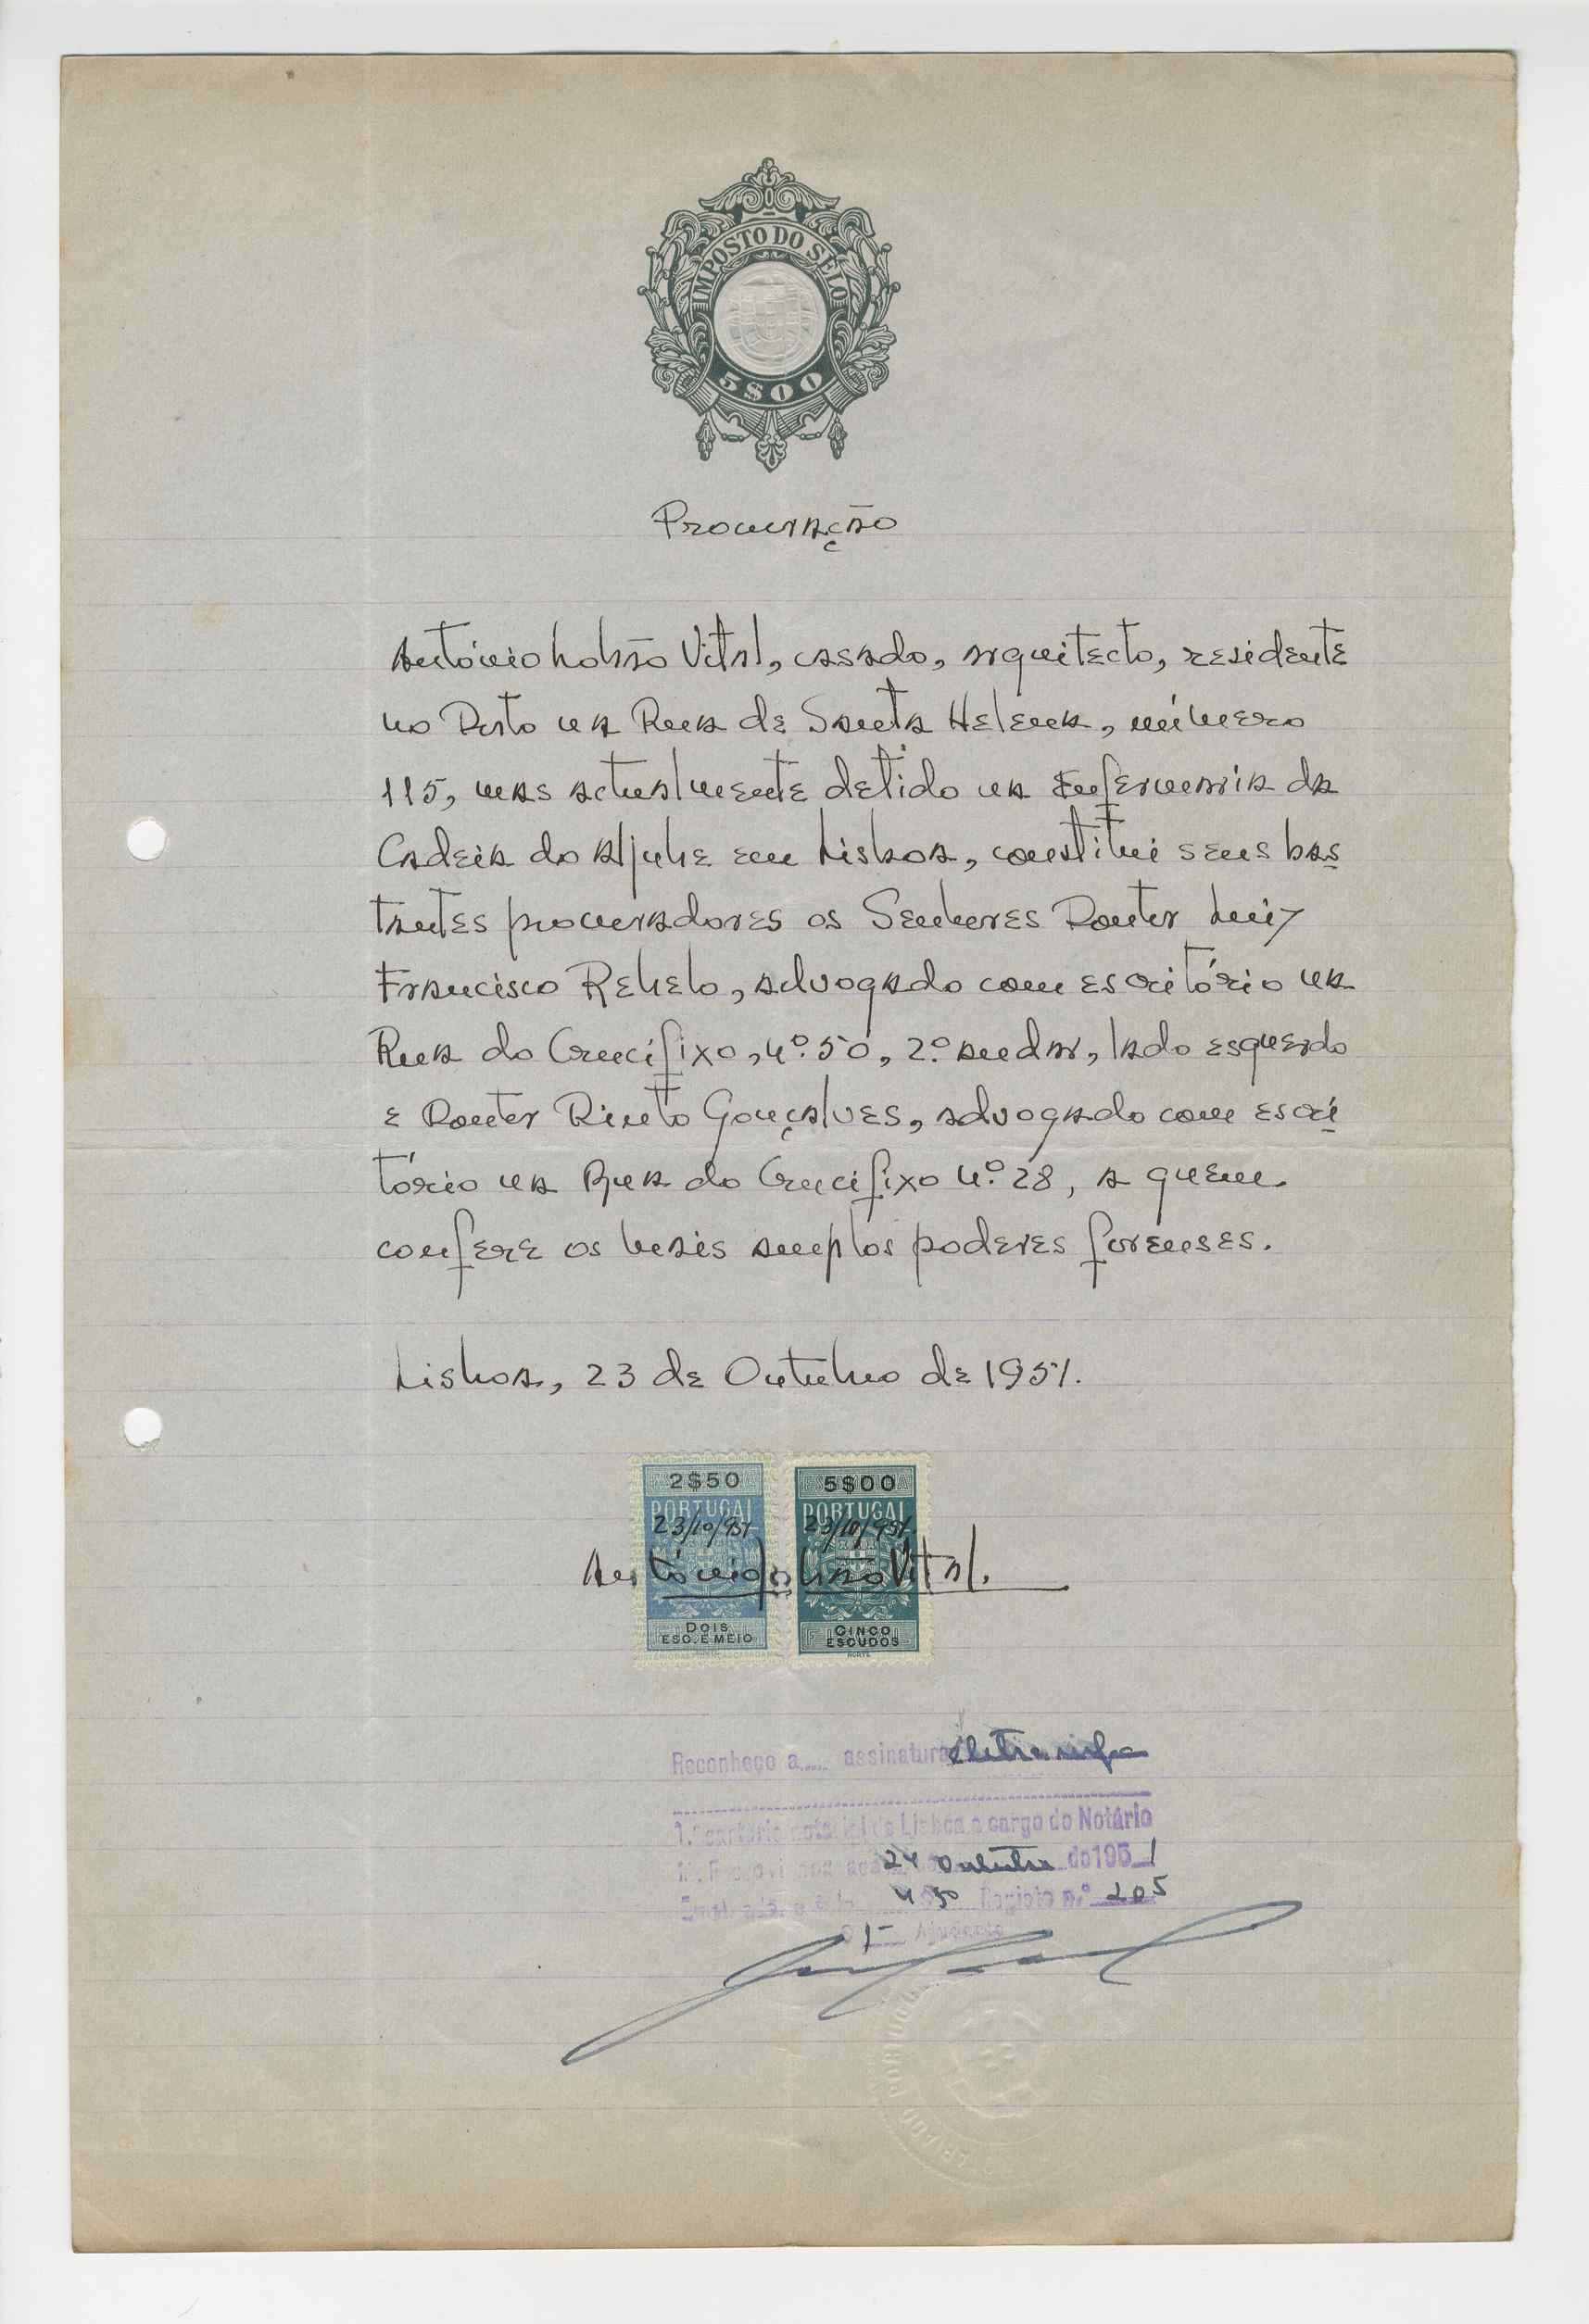 IMPOSTO DO SELO
5$00
Procuração
António Lobão Vital, casado, arquitecto, residente
no Porto na Rua de Santa Helena, número
115, mas actualmente detido na Enfermaria da
Cadeia do Aljube em Lisboa, constitui seus bas
tantes procuradores os Senhores Doutor Luiz
Francisco Rebelo, advogado com escritório na
Rua do Crucifixo, nº. 50, 2º. andar, lado esquerdo
e Doutor Pinto Gonçalves, advogado com escri
tório na Rua do Crucifixo nº. 28, a quem
confere os mais amplos poderes forenses.
Lisboa, 23 de Outubro de 1951.
2$50 5$00
PORTUGAL PORTUGAL
23/10/951. 23/10/951.
António Lobão Vital.
DOIS ESC. E MEIO CINCO ESCUDOS
Reconheço a assinatura
Lisboa a cargo do Notário
24 Outubro de 1951
4 50 Registo n.º 205
Ajudante